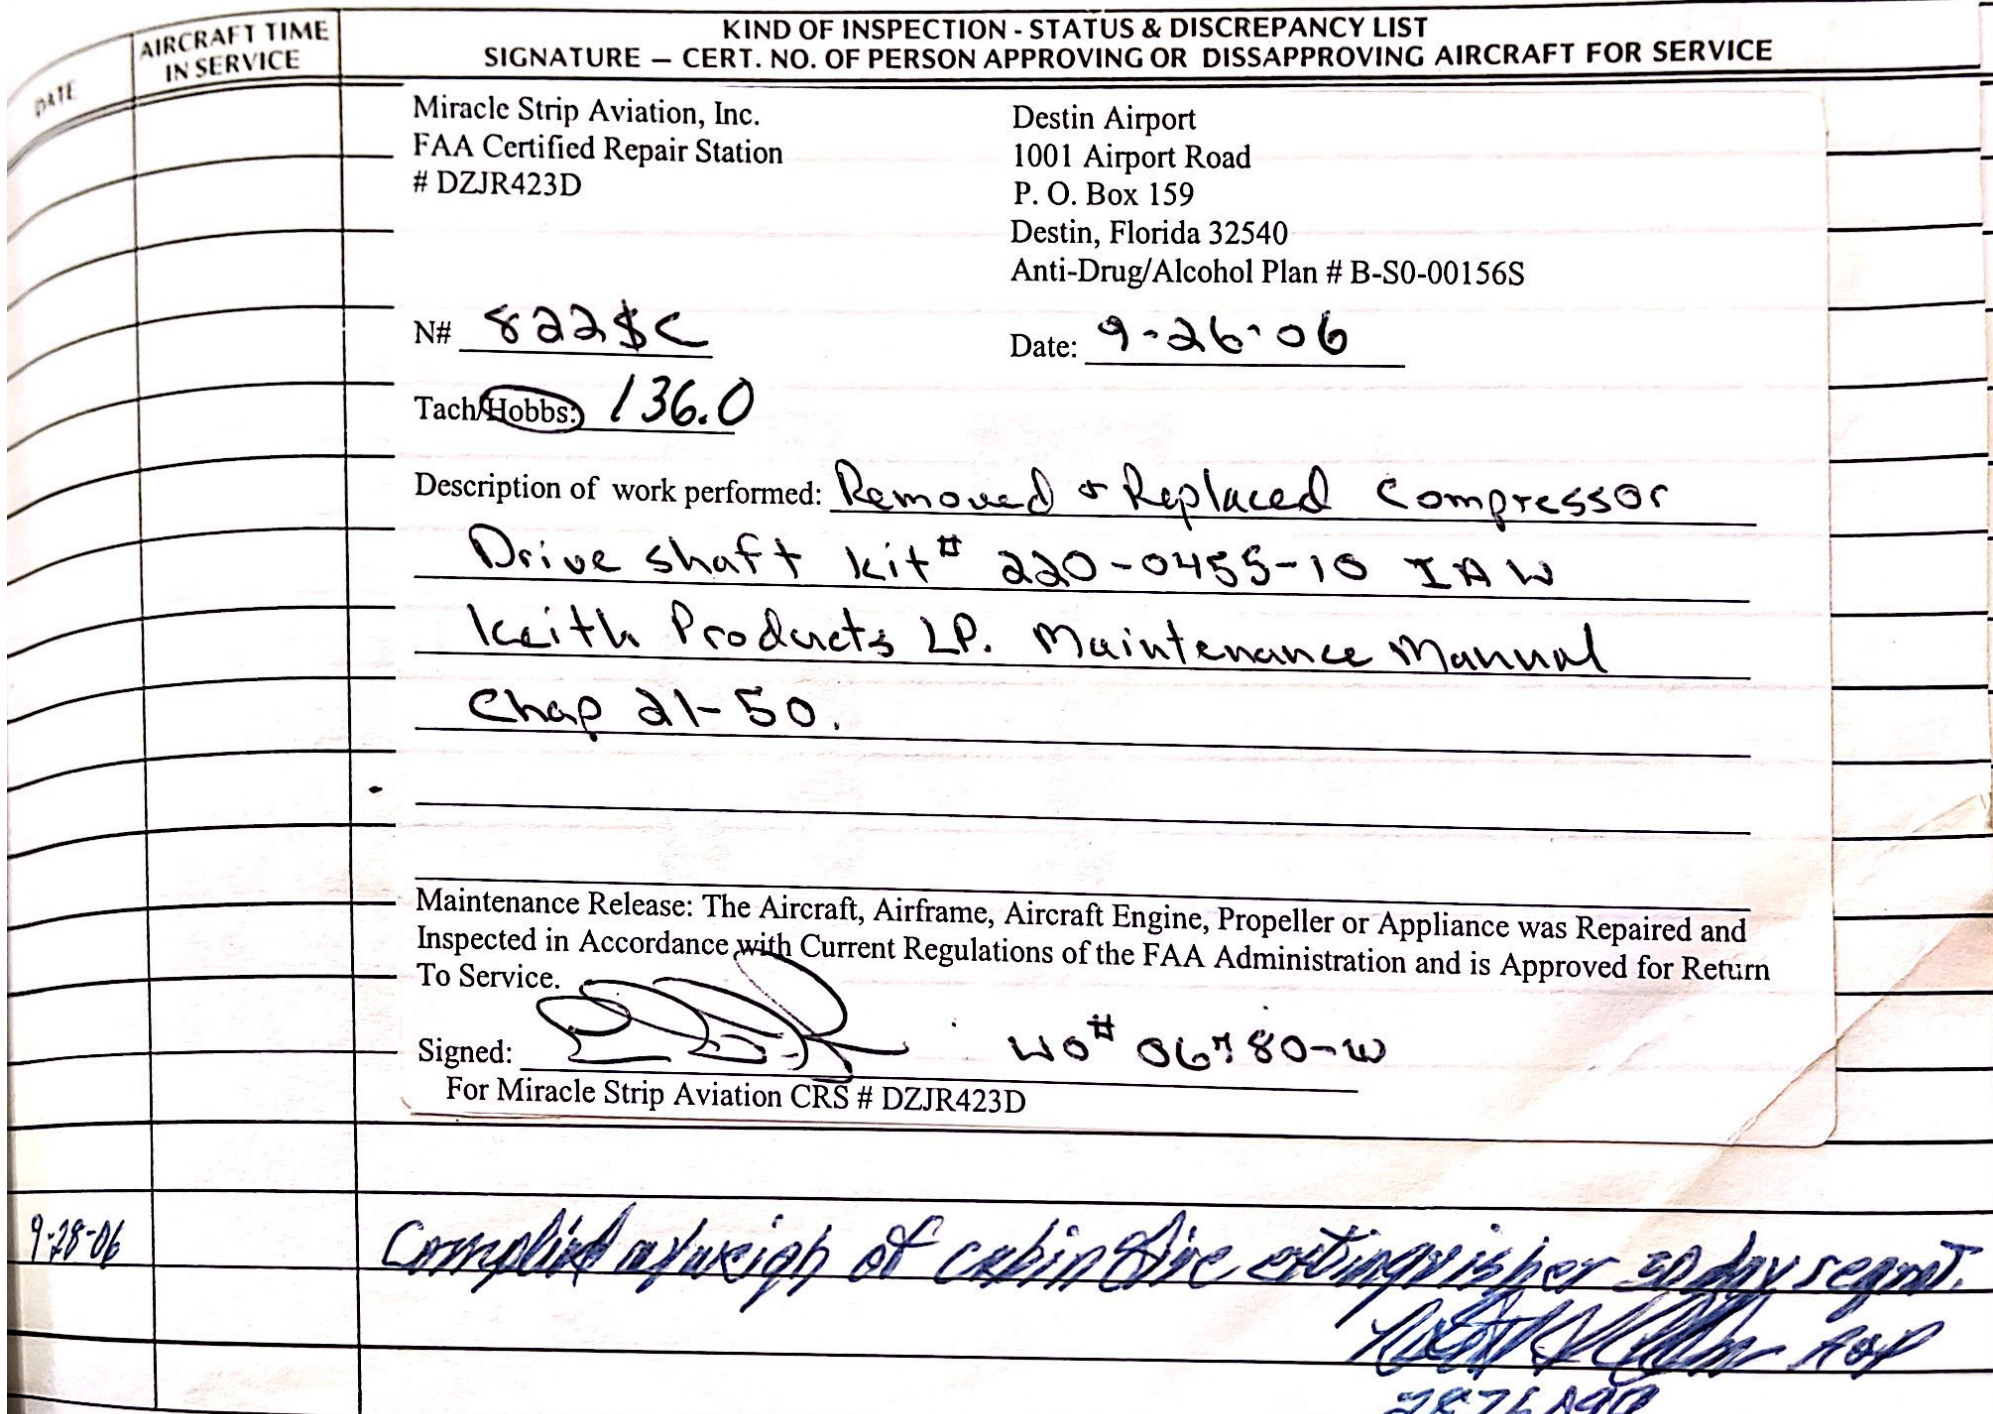 DATE
AIRCRAFT TIME
IN SERVICE
KIND OF INSPECTION - STATUS & DISCREPANCY LIST
SIGNATURE — CERT. NO. OF PERSON APPROVING OR DISSAPPROVING AIRCRAFT FOR SERVICE
Miracle Strip Aviation, Inc.
FAA Certified Repair Station
# DZJR423D
Destin Airport
1001 Airport Road
P. O. Box 159
Destin, Florida 32540
Anti-Drug/Alcohol Plan # B-S0-00156S
N#
Date: 9-26-06
Tach/Hobbs: 136.0
Description of work performed: Removed & Replaced Compressor
Drive shaft kit # 220-0455-10 IAW
Keith Products LP. Maintenance Manual
Chap 21-50.
Maintenance Release: The Aircraft, Airframe, Aircraft Engine, Propeller or Appliance was Repaired and
Inspected in Accordance with Current Regulations of the FAA Administration and is Approved for Return
To Service.
Signed: WO#
For Miracle Strip Aviation CRS # DZJR423D
9-28-06 Complied w/weigh of cabin fire extinguisher 30 day reqmt.